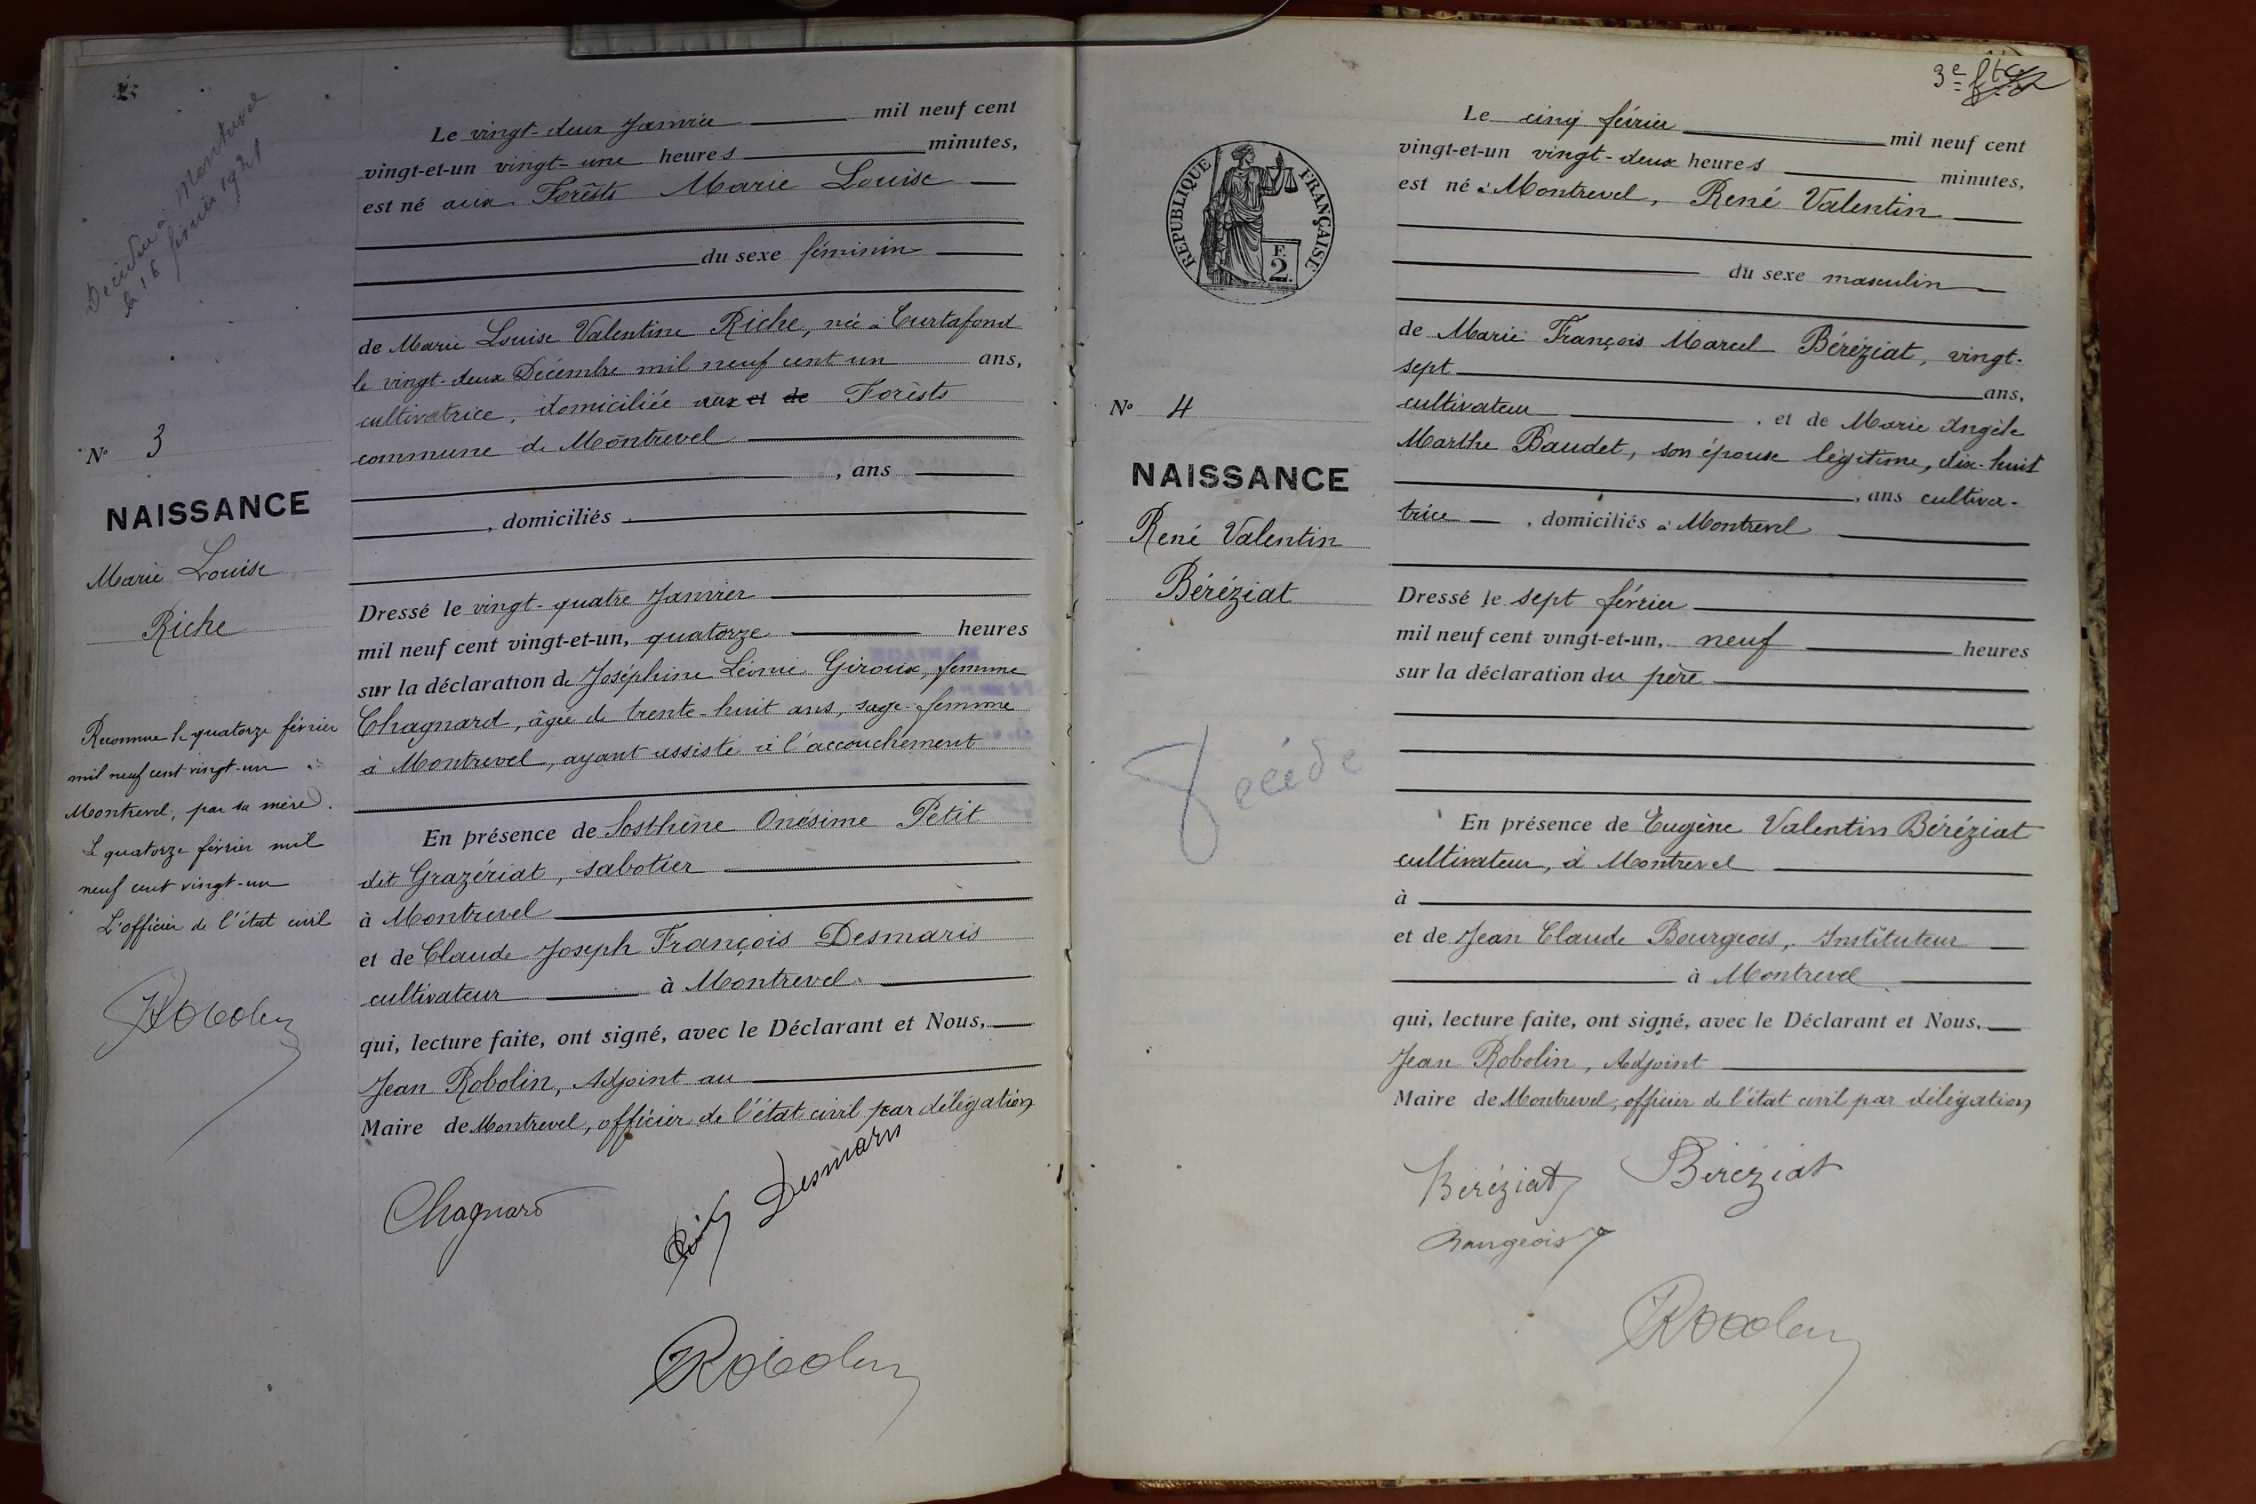 Décédée à Montrevel
le 16 février 1921
N° 3
NAISSANCE
Marie Louise
Riche
Reconnue le quatorze février
mil neuf cent vingt-un à
Montrevel, par sa mère.
Le quatorze février mil
neuf cent vingt-un
L'officier de l'état civil
JRobolin
Le vingt-deux Janvier mil neuf cent
vingt-et-un vingt-une heures minutes,
est né aux Forêsts Marie Louise
du sexe féminin
de Marie Louise Valentine Riche, née à Curtafond
le vingt-deux Décembre mil neuf cent un ans,
cultivatrice, domiciliée aux et de Forêsts
commune de Montrevel
, ans
, domiciliés
Dressé le vingt-quatre Janvier
mil neuf cent vingt-et-un, quatorze heures
sur la déclaration de Joséphine Léonie Giroux, femme
Chagnard, âgée de trente-huit ans, sage-femme
à Montrevel, ayant assisté à l'accouchement
En présence de Sosthène Onésime Petit
dit Grazériat, sabotier
à Montrevel
et de Claude Joseph François Desmaris
cultivateur à Montrevel
qui, lecture faite, ont signé, avec le Déclarant et Nous,
Jean Robolin, Adjoint au
Maire de Montrevel, officier de l'état civil par délégation
Chagnard
Petit Desmaris
JRobolin
3e
REPUBLIQUE FRANÇAISE
F.
2.
N° 4
NAISSANCE
René Valentin
Béréziat
Décédé
Le cinq février mil neuf cent
vingt-et-un vingt-deux heures minutes,
est né à Montrevel, René Valentin
du sexe masculin
de Marie François Marcel Béréziat, vingt-
sept ans,
cultivateur , et de Marie Angèle
Marthe Baudet, son épouse légitime, dix-huit
, ans cultiva-
trice , domiciliés à Montrevel
Dressé le sept février
mil neuf cent vingt-et-un, neuf heures
sur la déclaration du père
En présence de Eugène Valentin Béréziat
cultivateur, à Montrevel
à
et de Jean Claude Bourgeois, Instituteur
à Montrevel
qui, lecture faite, ont signé, avec le Déclarant et Nous,
Jean Robolin, Adjoint
Maire de Montrevel, officier de l'état civil par délégation
Béréziat Béréziat
Bourgeois
JRobolin